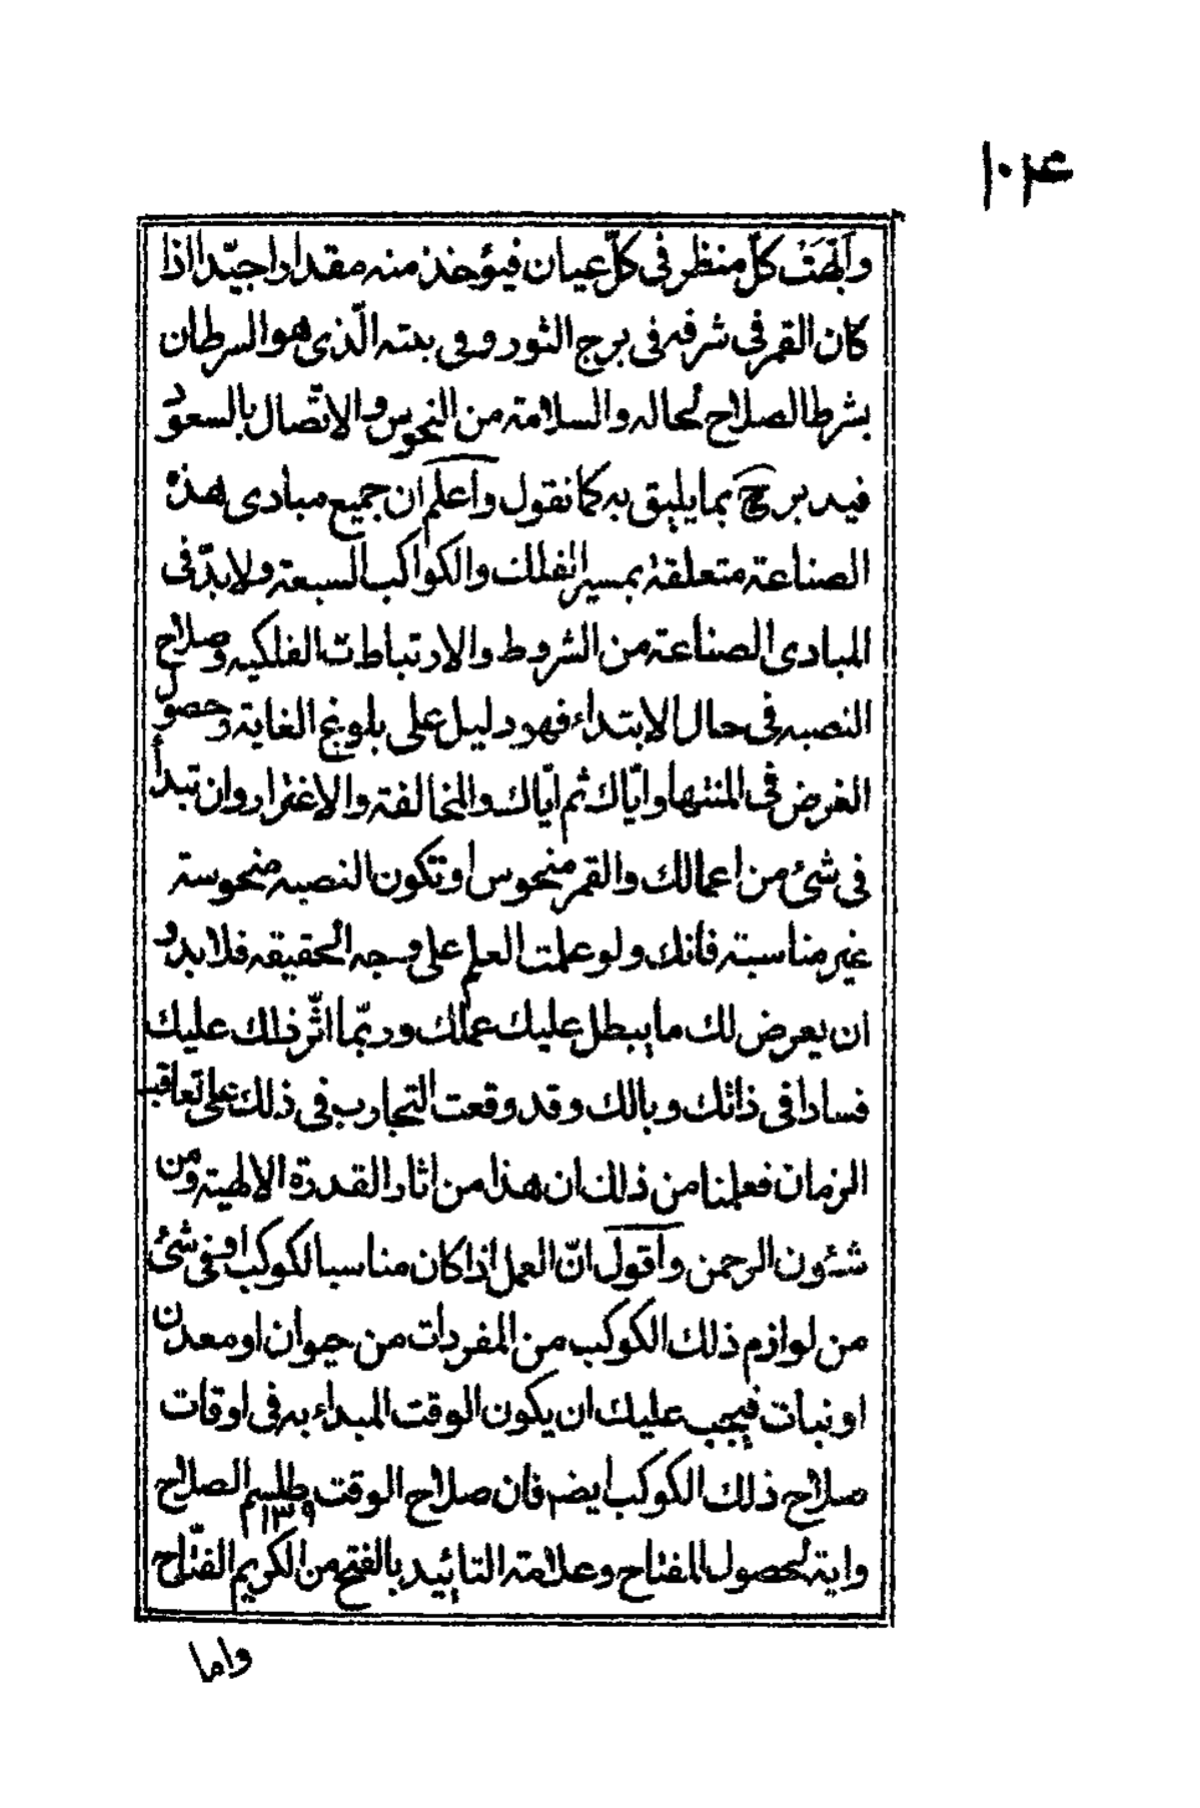 ۱۰۴
وابهت كلّ منظر فى كلّ عيان فيؤخذ منه مقدارا جيّدا اذا
كان القمر فى شرفه فى برج الثور وفى بيته الّذى هو السرطان
بشرط الصلاح لحاله والسلامته من النحوس والاتّصال بالسعود
فيد برج بما يليق به كما نقول واعلم ان جميع مبادى هذه
الصناعة متعلقة بمسير الفلك والكواكب السبعة ولا بدّ فى
المبادى الصناعة من الشروط والارتباطات الفلكيه وصلاح
النصبه فى حال الابتداء فهو دليل على بلوغ الغاية وحصول
الغرض فى المنتها وايّاك ثم ايّاك والمخالفة والاغترار وان تبدأ
فى شئ من اعمالك والقمر منحوس او تكون النصبه منحوسة
غير مناسبته فانك ولو عملت العلم على وجه الحقيقه فلا بد و
ان يعرض لك ما يبطل عليك عملك وربّما اثّر ذلك عليك
فسادا فى ذاتك وبالك وقد وقعت التجارب فى ذلك على تعاقب
الزمان فعلمنا من ذلك ان هذا من اثار القدرة الالهية ومن
شئون الرحمن واقول انّ العمل اذا كان مناسبا لكوكب او فى شئ
من لوازم ذلك الكوكب من المفردات من حيوان او معدن
او نبات فيجب عليك ان يكون الوقت المبداء به فى اوقات
صلاح ذلك الكوكب ايضم فان صلاح الوقت طلسم الصلاح
۱۳۹
واية لحصول المفتاح وعلامة التائيد بالفتح من الكريم الفتّاح
واما